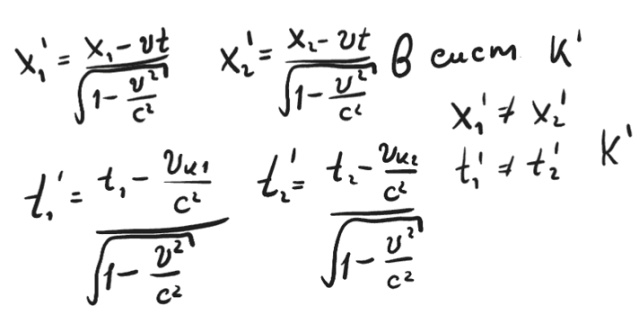 x₁' = (x₁ - vt) / √(1 - v²/c²)    x₂' = (x₂ - vt) / √(1 - v²/c²)  В сист K'
x₁' ≠ x₂'
t₁' ≠ t₂'  K'
t₁' = (t₁ - vк₁/c²) / √(1 - v²/c²)    t₂' = (t₂ - vк₂/c²) / √(1 - v²/c²)